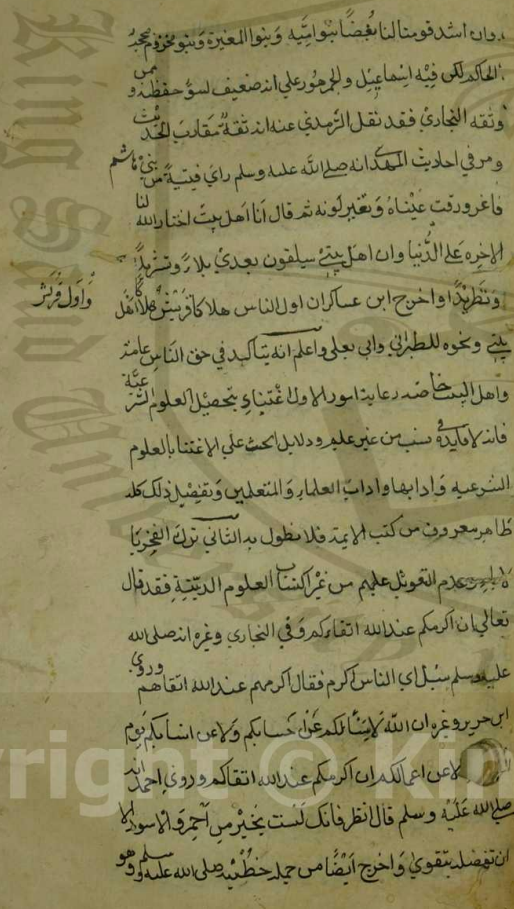 وان اشد قومنا لنا بغضا بنوا امية وبنوا المغيرة وبنو مخزوم صححه
الحاكم لكن فيه اسماعيل والجمهور على انه ضعيف لسوء حفظه وممن
وثقه البخاري فقد نقل الترمذي عنه انه ثقة مقارب الحديث
ومر في احاديث المهدي انه صلى الله عليه وسلم راي فتية من بني هاشم
فاغرورقت عيناه وتغير لونه ثم قال انا اهل بيت اختار الله لنا
الاخره على الدنيا وان اهل بيتي سيلقون بعدي بلاء وتشريدا
وتطريدا واخرج ابن عساكر ان اول الناس هلاكا قريش
واول قريش هلاكا اهل
بيتي ونحوه للطبراني وابي يعلى واعلم انه يتاكد في حق الناس عامة
واهل البيت خاصه رعاية امور الاول الاعتناء بتحصيل العلوم الشرعية
فانه لا فايدة في نسب من غير علم ودلايل الحث على الاعتنا بالعلوم
الشرعيه وادابها واداب العلماء والمتعلمين وتفضيل ذلك كله
ظاهر معروف من كتب الايمة فلا نطول به الثاني ترك الفخر با
لاباء وعدم التعويل عليهم من غير اكتساب العلوم الدينية فقد قال
تعالي ان اكرمكم عند الله اتقاكم وفي البخاري وغيره انه صلى الله
عليه وسلم سئل اي الناس اكرم فقال اكرمهم عند الله اتقاهم وروي
ابن جرير وغيره ان الله لا يسألكم عن احسابكم ولا عن انسابكم يوم
لا عن اعمالكم ان اكرمكم عند الله اتقاكم وروي احمد انه
صلى الله عليه وسلم قال انظر فانك لست بخير من احمر ولا اسود الا
ان تفضله بتقوي واخرج ايضا من جملة خطبته صلى الله عليه وسلم وهو
King Saud University
Copyright © Kin